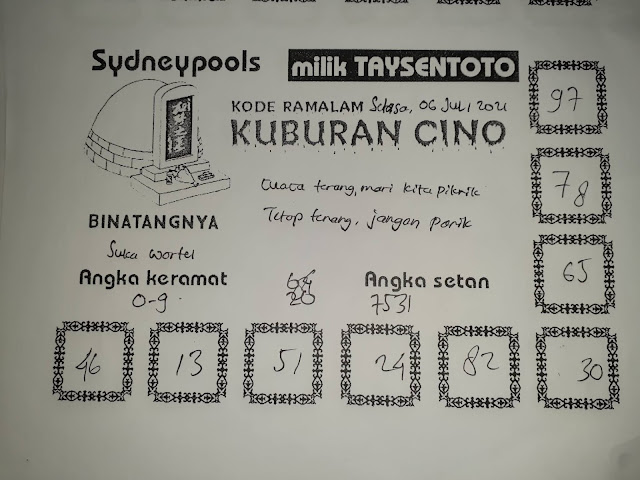 Sydneypools
milik TAYSENTOTO
97
KODE RAMALAM Selasa, 06 Juli 2021
KUBURAN CINO
78
Cuaca terang, mari kita piknik
BINATANGNYA
Tetap tenang, jangan panik
Suka wortel
65
Angka keramat
64
Angka setan
0-9
20
7531
46
13
51
24
82
30